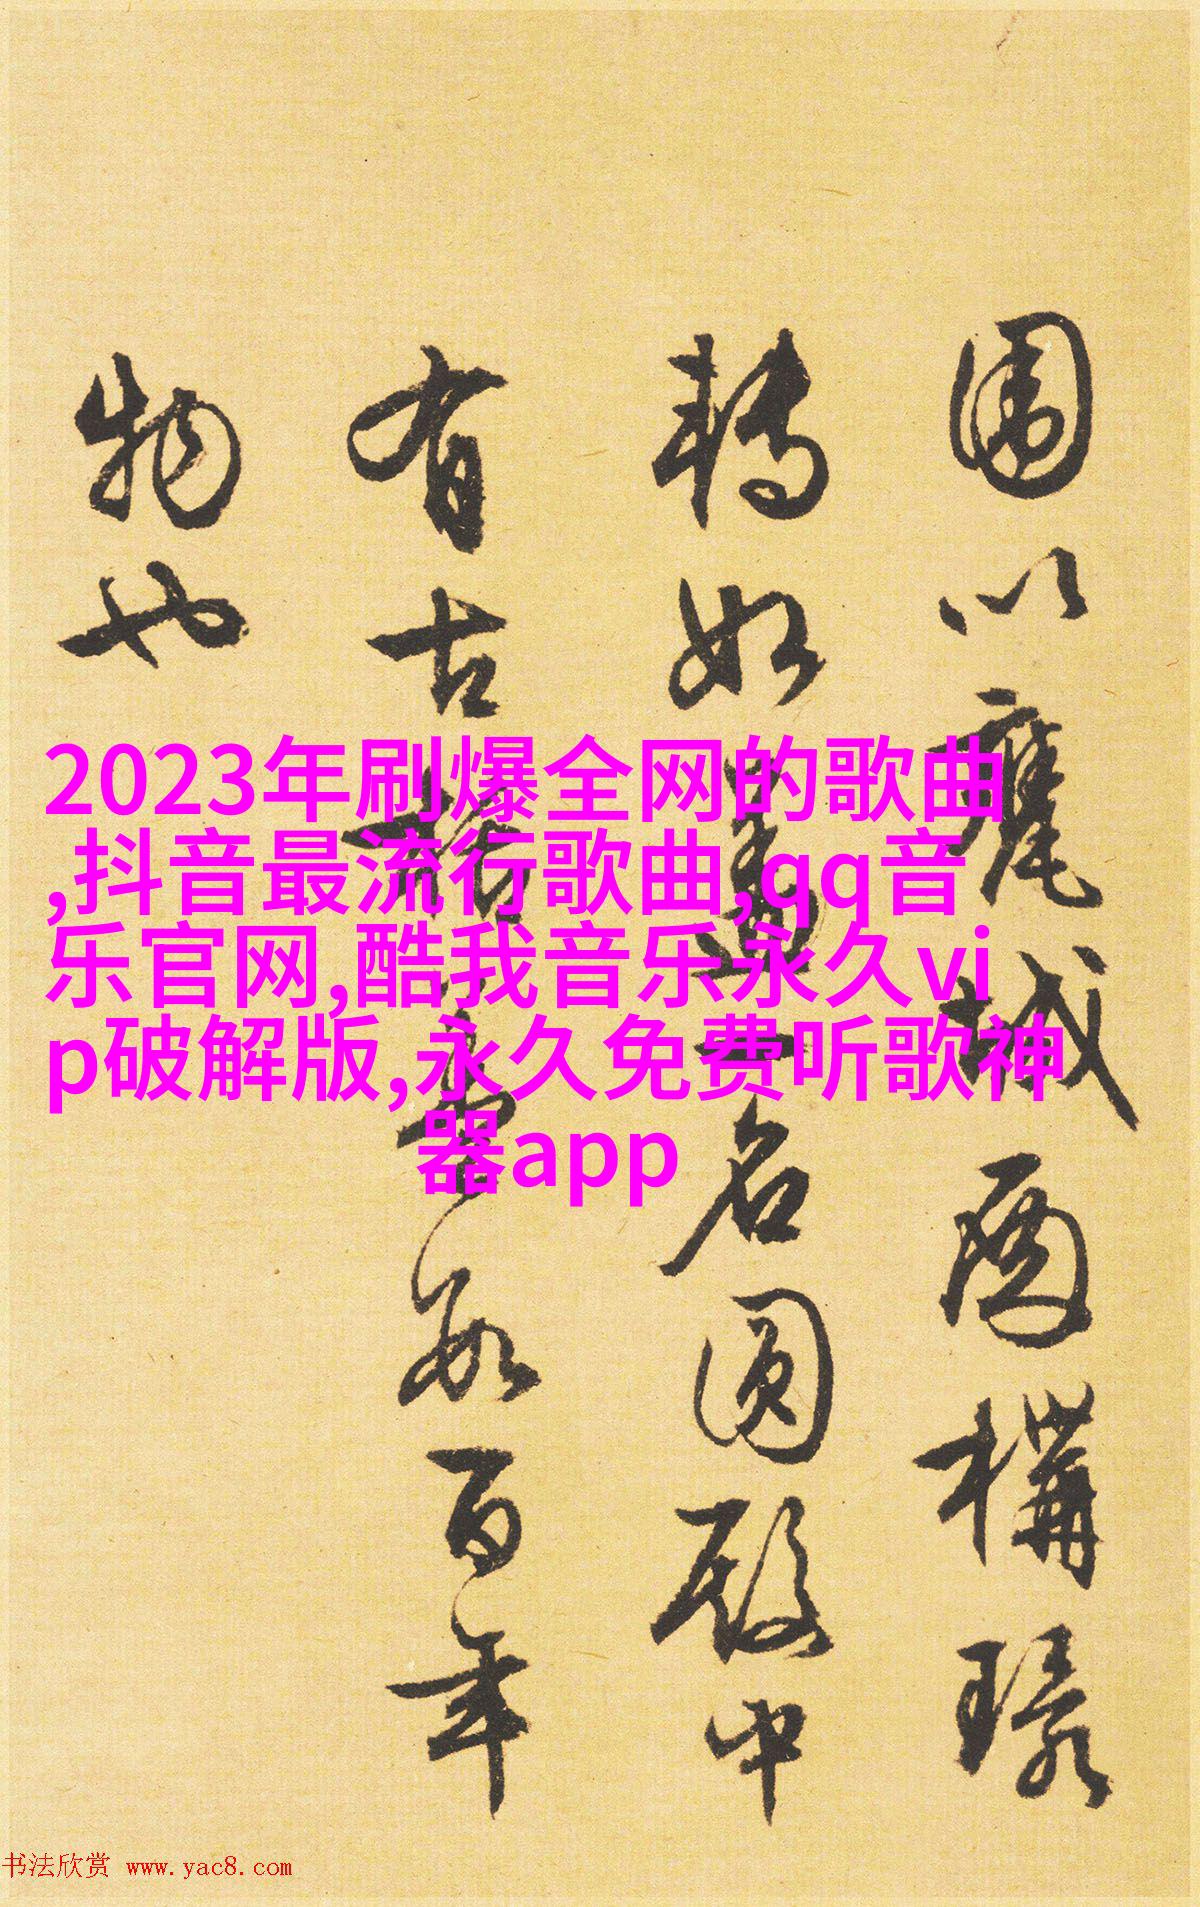 围以甕城面構環
轉如盖一名圆殿中
有古栝棗數百年
物也
2023年刷爆全网的歌曲
,抖音最流行歌曲,qq音
乐官网,酷我音乐永久vi
p破解版,永久免费听歌神
器app
书法欣赏 www.yac8.com